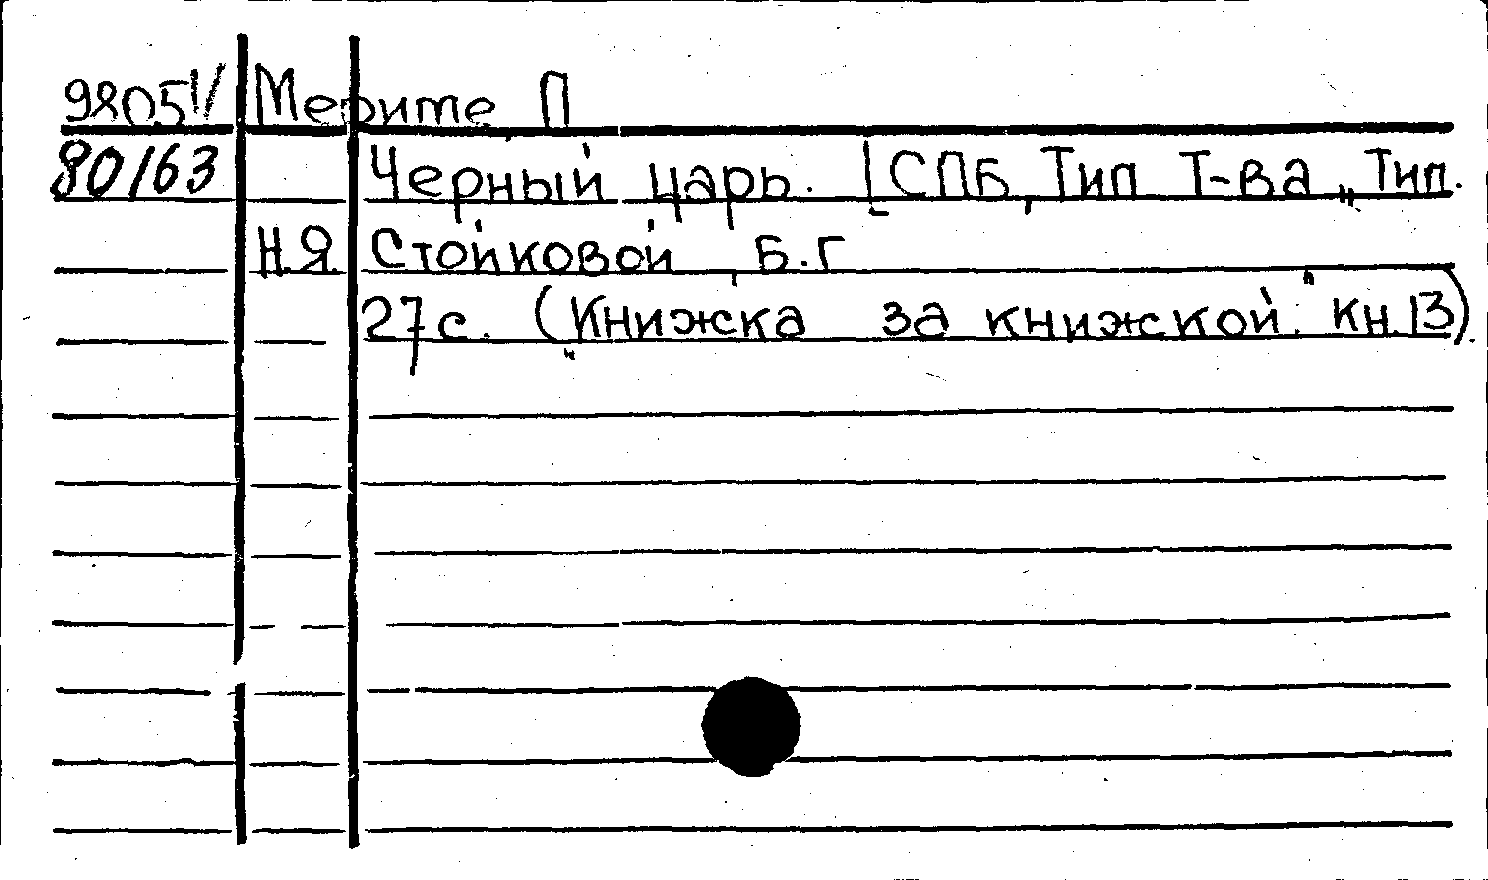 9805 IV Мерите, П
80/63 Черный царь. [СПБ, Тип Т-ва „Тип.
Н.Я. Стойковой", Б.Г
27с. („Книжка за книжкой". Кн.13).